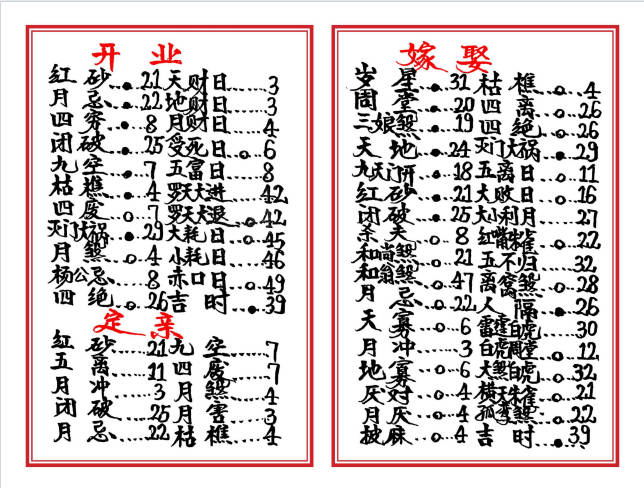 开业
红砂...21 天财日...3
月忌...22 地财日...3
四穷...8 月财日...4
闭破...25 受死日...6
九空...7 五富日...8
枯樵...4 罗天大进...42
四废...7 罗天大退...42
灭门大祸...29 大耗日...45
月煞...4 小耗日...46
杨公忌...8 赤口日...49
四绝...26 吉时...39
定亲
红砂...21 九空...7
五离...11 四废...7
月冲...3 月煞...4
闭破...25 月害...3
月忌...22 枯樵...4
嫁娶
岁星...31 枯樵...4
周堂...20 四离...26
三娘煞...19 四绝...26
天地...24 灭门大祸...29
九天门开...18 五离日...11
红砂...21 大败日...16
闭破...25 大小利月...27
杀夫...8 红嘴朱雀...22
和尚煞...21 五不归...32
和翁煞...47 离窝煞...28
月忌...22 人隔...26
天寡...6 雷霆白虎...30
月冲...3 白虎周堂...12
地寡...6 大煞白虎...32
厌对...4 横天朱雀...21
月厌...4 孤季煞...22
披麻...4 吉时...39